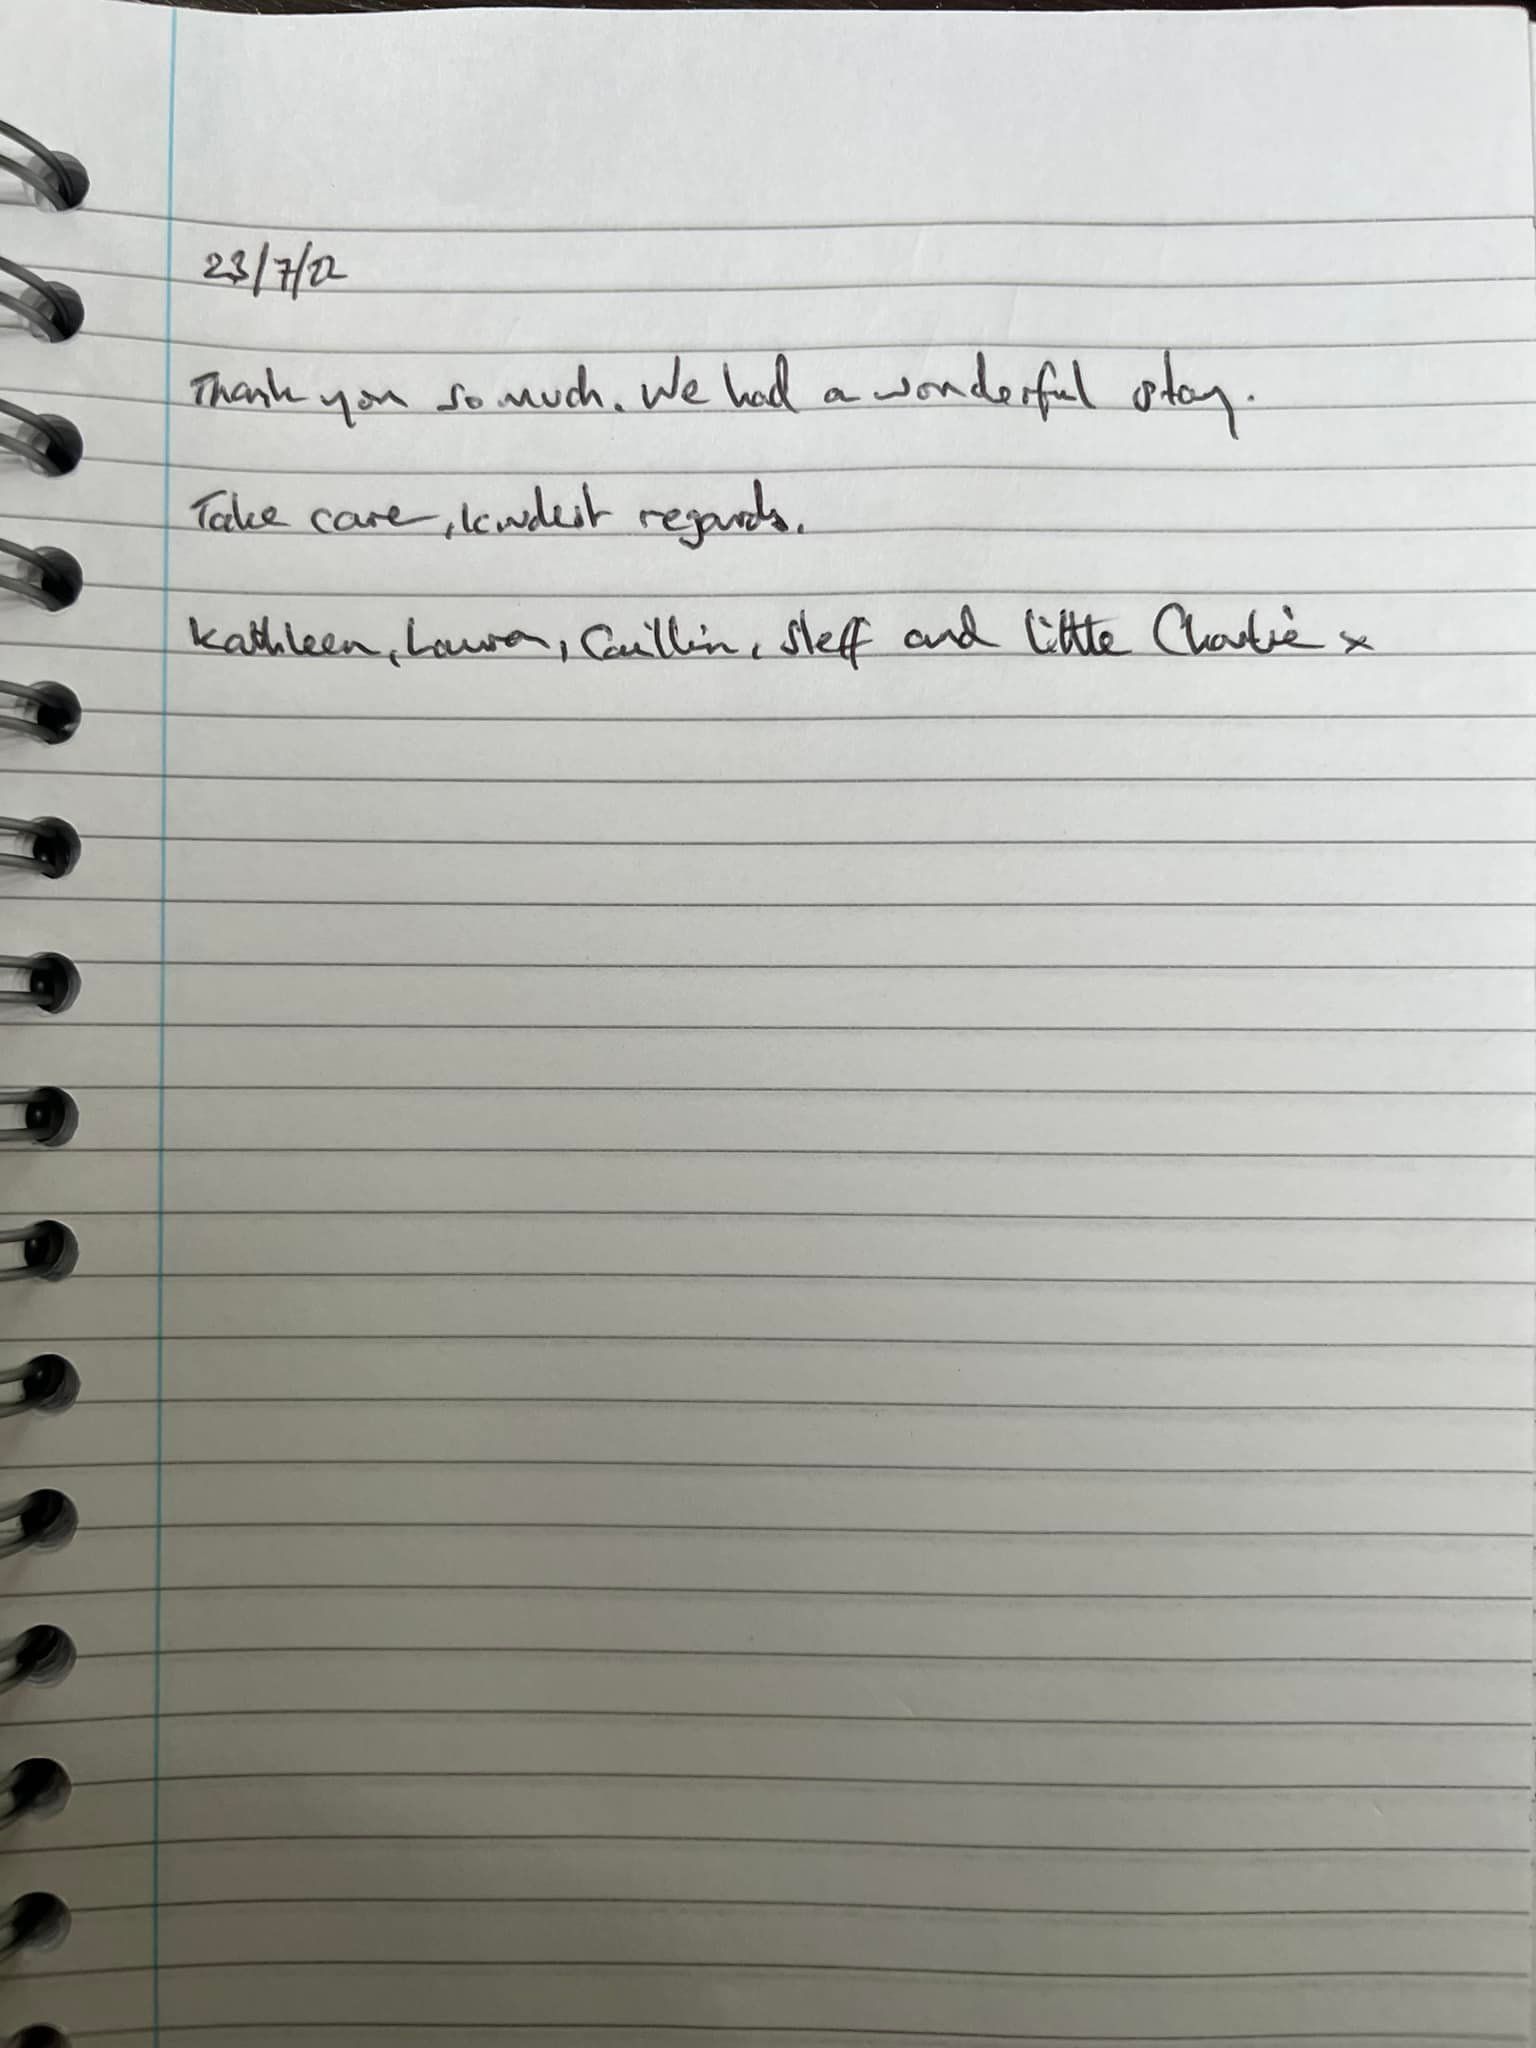 23/7/22
Thank you so much. We had a wonderful stay.
Take care, kindest regards.
Kathleen, Laura, Caillin, Steff and little Charlie x